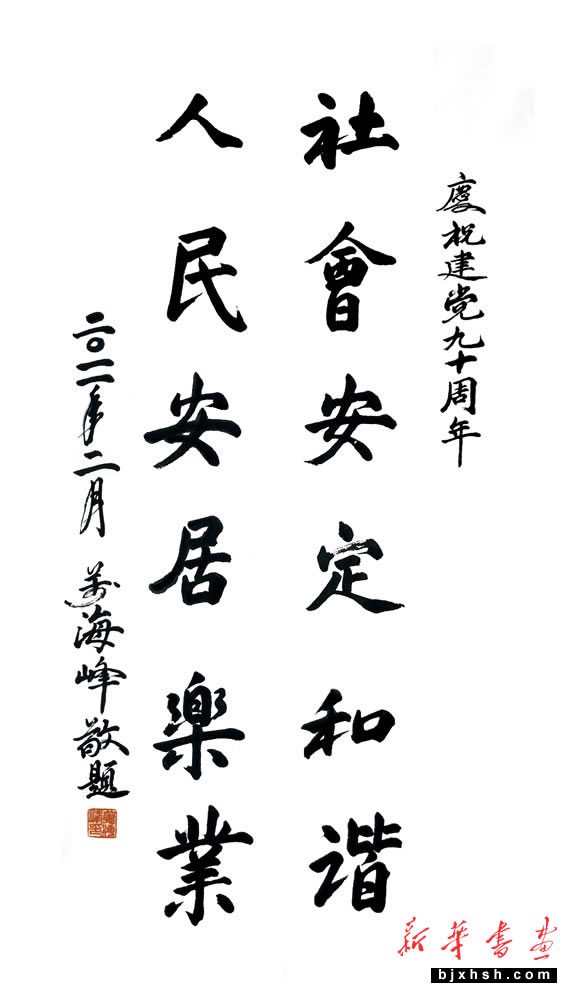 慶祝建党九十周年
社會安定和谐
人民安居樂業
二〇一一年二月 萬海峰敬題
新华书画
bjxhsh.com